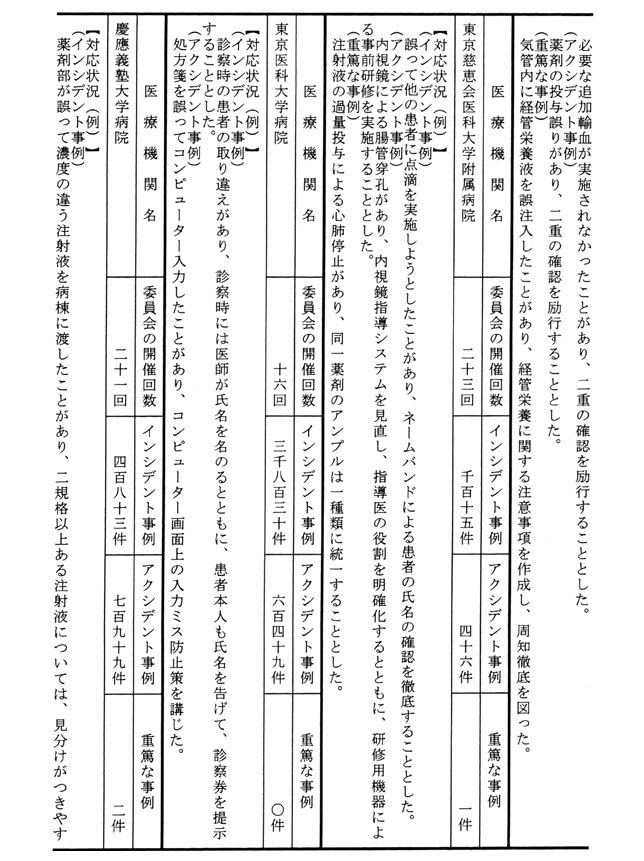 必要な追加輸血が実施されなかったことがあり、二重の確認を励行することとした。
(アクシデント事例)
薬剤の投与誤りがあり、二重の確認を励行することとした。
(重篤な事例)
気管内に経管栄養液を誤注入したことがあり、経管栄養に関する注意事項を作成し、周知徹底を図った。
医療機関名 委員会の開催回数 インシデント事例 アクシデント事例 重篤な事例
東京慈恵会医科大学附属病院 二十三回 千百十五件 四十六件 一件
【対応状況(例)】
(インシデント事例)
誤って他の患者に点滴を実施しようとしたことがあり、ネームバンドによる患者の氏名の確認を徹底することとした。
(アクシデント事例)
内視鏡による腸管穿孔があり、内視鏡指導システムを見直し、指導医の役割を明確化するとともに、研修用機器によ
る事前研修を実施することとした。
(重篤な事例)
注射液の過量投与による心肺停止があり、同一薬剤のアンプルは一種類に統一することとした。
医療機関名 委員会の開催回数 インシデント事例 アクシデント事例 重篤な事例
東京医科大学病院 十六回 三千八百三十件 六百四十九件 〇件
【対応状況(例)】
(インシデント事例)
診察時の患者の取り違えがあり、診察時には医師が氏名を名のるとともに、患者本人も氏名を告げて、診察券を提示
することとした。
(アクシデント事例)
処方箋を誤ってコンピューター入力したことがあり、コンピューター画面上の入力ミス防止策を講じた。
医療機関名 委員会の開催回数 インシデント事例 アクシデント事例 重篤な事例
慶應義塾大学病院 二十一回 四百八十三件 七百九十九件 二件
【対応状況(例)】
(インシデント事例)
薬剤部が誤って濃度の違う注射液を病棟に渡したことがあり、二規格以上ある注射液については、見分けがつきやす